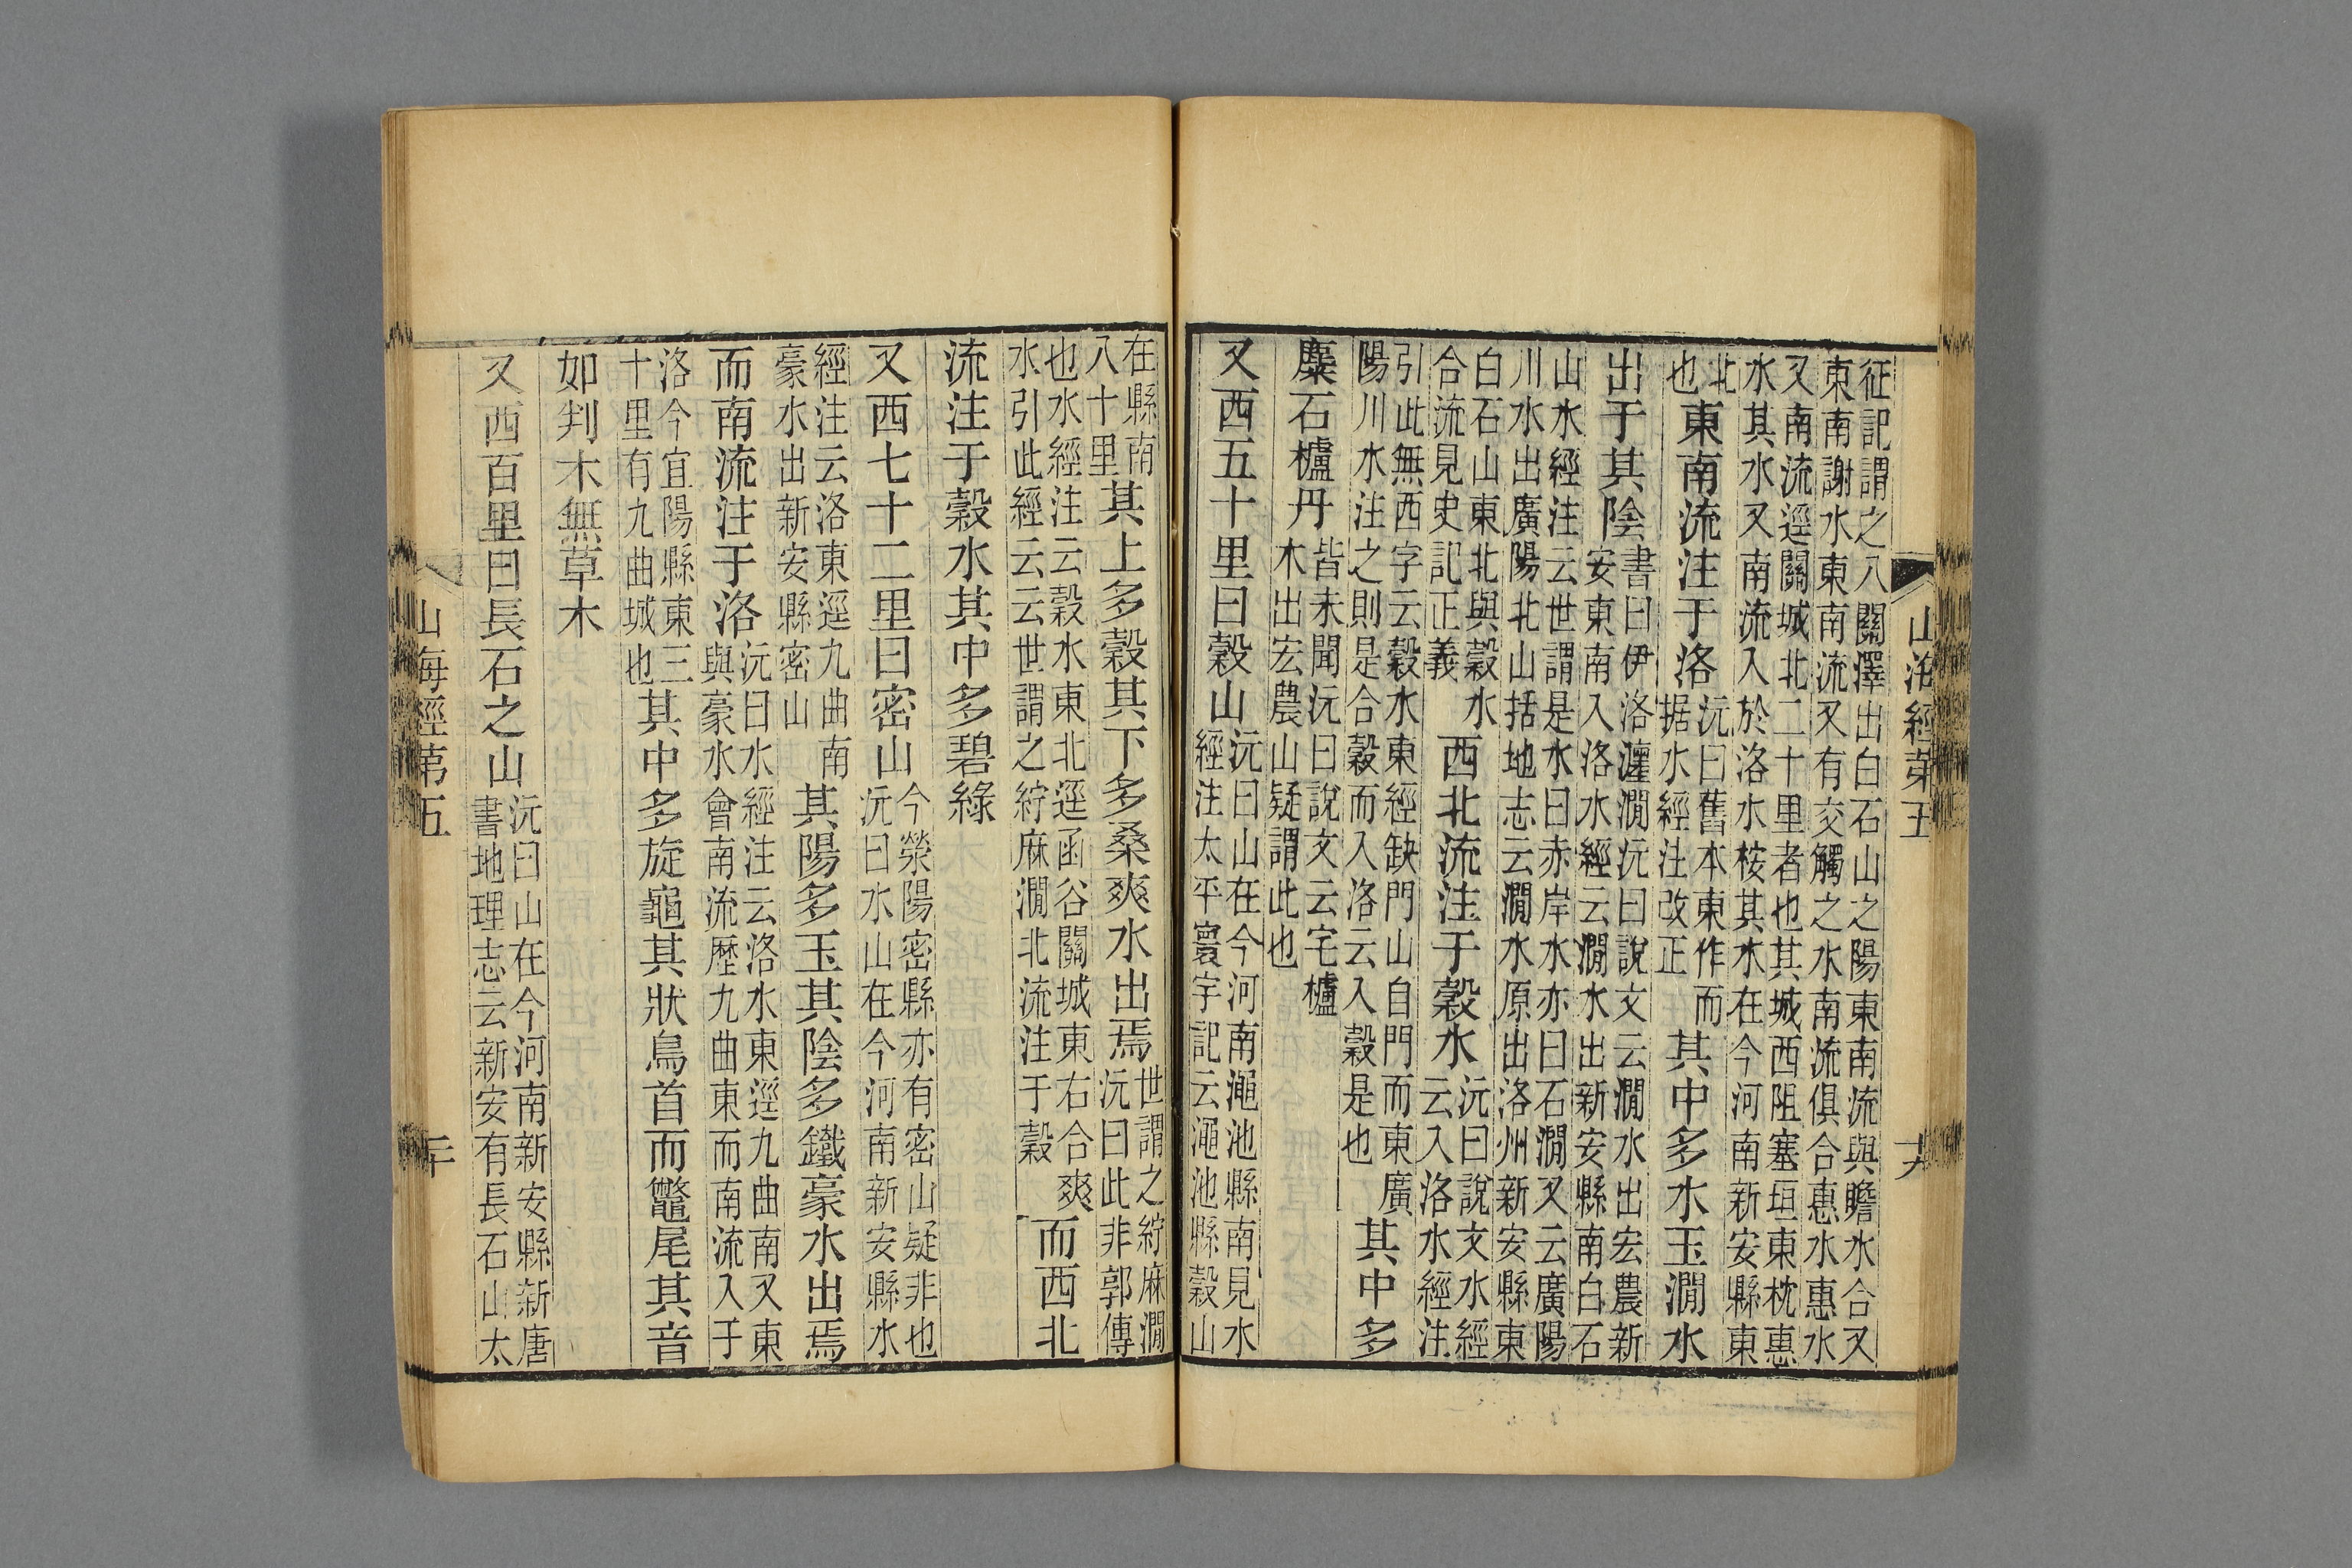 山海經第五
十九
征記謂之八關澤出白石山之陽東南流與瞻水合又
東南謝水東南流又有交觸之水南流俱合惠水惠水
又南流逕關城北二十里者也其城西阻塞垣東枕惠
水其水又南流入於洛水桉其水在今河南新安縣東
北
也東南流注于洛沅曰舊本東作而
据水經注改正其中多水玉澗水
出于其陰書曰伊洛瀍澗沅曰說文云澗水出宏農新
安東南入洛水經云澗水出新安縣南白石
山水經注云世謂是水曰赤岸水亦曰石澗又云廣陽
川水出廣陽北山括地志云澗水原出洛州新安縣東
白石山東北與穀水
合流見史記正義西北流注于穀水沅曰說文水經
云入洛水經注
引此無西字云穀水東經缺門山自門而東廣
陽川水注之則是合穀而入洛云入穀是也其中多
麋石櫨丹皆未聞沅曰說文云宅櫨
木出宏農山疑謂此也
又西五十里曰穀山沅曰山在今河南澠池縣南見水
經注太平寰宇記云澠池縣穀山
在縣南
八十里其上多穀其下多桑爽水出焉世謂之紵麻澗
沅曰此非郭傳
也水經注云穀水東北逕函谷關城東右合爽
水引此經云云世謂之紵麻澗北流注于穀而西北
流注于穀水其中多碧綠
又西七十二里曰密山今滎陽密縣亦有密山疑非也
沅曰水山在今河南新安縣水
經注云洛東逕九曲南
豪水出新安縣密山其陽多玉其陰多鐵豪水出焉
而南流注于洛沅曰水經注云洛水東逕九曲南又東
與豪水會南流歷九曲東而南流入于
洛今宜陽縣東三
十里有九曲城也其中多旋龜其狀鳥首而鼈尾其音
如判木無草木
又西百里曰長石之山沅曰山在今河南新安縣新唐
書地理志云新安有長石山太
山海經第五
二十